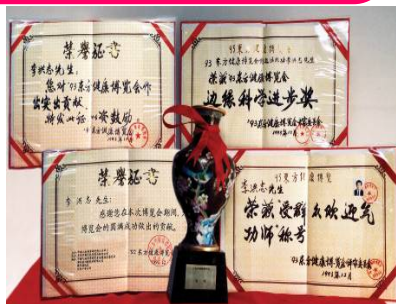 荣誉证书
李洪志先生:
您对'93东方健康博览会作
出突出贡献,
特发此证 以资鼓励
'93东方健康博览会
李洪志先生
荣获'93东方健康博览会
边缘科学进步奖
'93东方健康博览会
1993年12月
荣誉证书
李洪志先生:
感谢您在本次博览会期间,
博览会的圆满成功做出的贡献。
93东方健康博览
李洪志先生
荣获受群众欢迎气
功师称号
93东方健康博览会
1993年12月